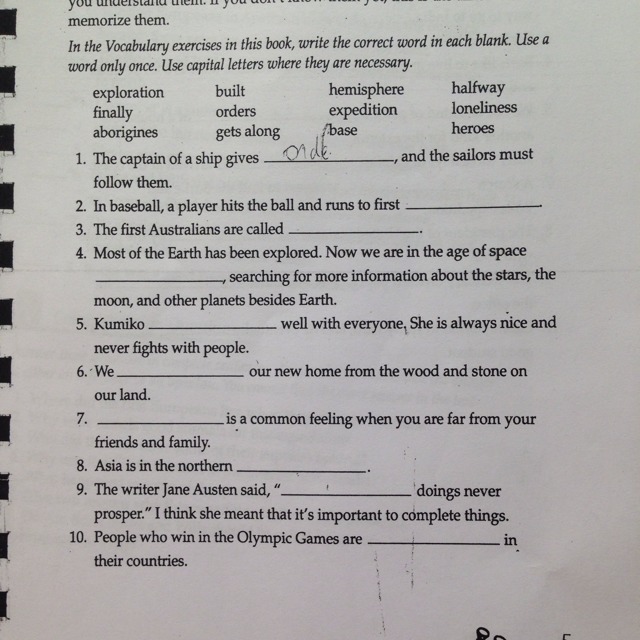 memorize them.
In the Vocabulary exercises in this book, write the correct word in each blank. Use a
word only once. Use capital letters where they are necessary.
exploration built hemisphere halfway
finally orders expedition loneliness
aborigines gets along base heroes
1. The captain of a ship gives orde, and the sailors must
follow them.
2. In baseball, a player hits the ball and runs to first ____________.
3. The first Australians are called ____________.
4. Most of the Earth has been explored. Now we are in the age of space
____________, searching for more information about the stars, the
moon, and other planets besides Earth.
5. Kumiko ____________ well with everyone. She is always nice and
never fights with people.
6. We ____________ our new home from the wood and stone on
our land.
7. ____________ is a common feeling when you are far from your
friends and family.
8. Asia is in the northern ____________.
9. The writer Jane Austen said, "____________ doings never
prosper." I think she meant that it's important to complete things.
10. People who win in the Olympic Games are ____________ in
their countries.